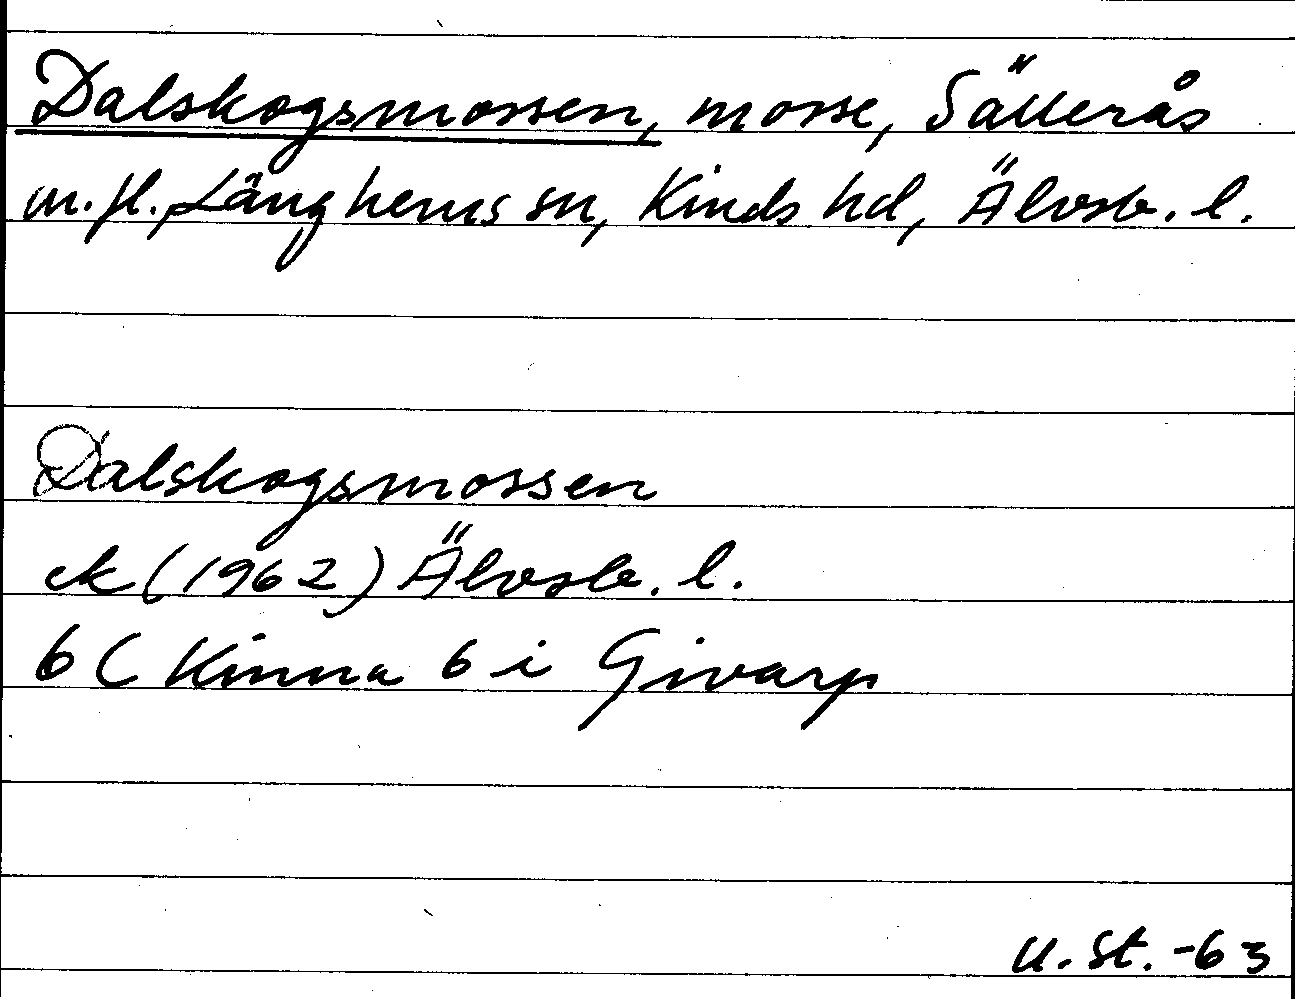 Dalskogsmossen, mosse, Sällerås
m.fl. Länghems sn, Kinds hd, Älvsb. l.
Dalskogsmossen
ek (1962) Älvsb. l.
6 C Kinna 6 i Givarp
U. St. -63